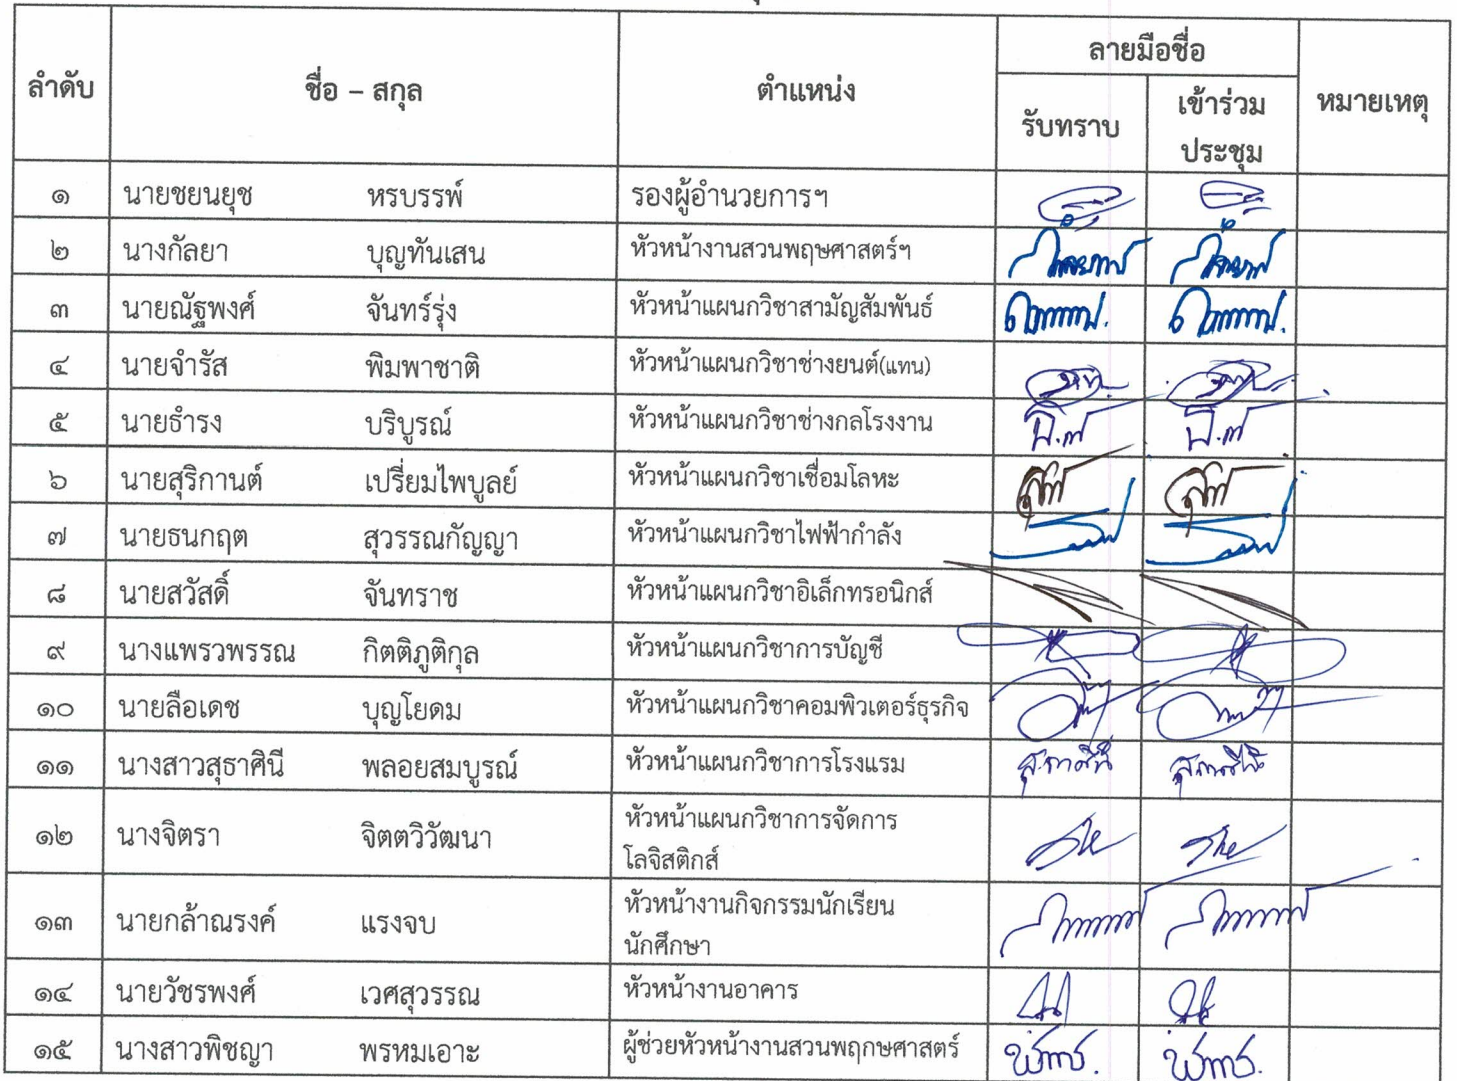 ลายมือชื่อ
ลำดับ ชื่อ – สกุล ตำแหน่ง หมายเหตุ
รับทราบ เข้าร่วม
ประชุม
๑ นายชยนยุช หรบรรพ์ รองผู้อำนวยการฯ
๒ นางกัลยา บุญทันเสน หัวหน้างานสวนพฤษศาสตร์ฯ
๓ นายณัฐพงศ์ จันทร์รุ่ง หัวหน้าแผนกวิชาสามัญสัมพันธ์
๔ นายจำรัส พิมพาชาติ หัวหน้าแผนกวิชาช่างยนต์(แทน)
๕ นายธำรง บริบูรณ์ หัวหน้าแผนกวิชาช่างกลโรงงาน
๖ นายสุริกานต์ เปรี่ยมไพบูลย์ หัวหน้าแผนกวิชาเชื่อมโลหะ
๗ นายธนกฤต สุวรรณกัญญา หัวหน้าแผนกวิชาไฟฟ้ากำลัง
๘ นายสวัสดิ์ จันทราช หัวหน้าแผนกวิชาอิเล็กทรอนิกส์
๙ นางแพรวพรรณ กิตติภูติกุล หัวหน้าแผนกวิชาการบัญชี
๑๐ นายลือเดช บุญโยดม หัวหน้าแผนกวิชาคอมพิวเตอร์ธุรกิจ
๑๑ นางสาวสุธาศินี พลอยสมบูรณ์ หัวหน้าแผนกวิชาการโรงแรม
๑๒ นางจิตรา จิตตวิวัฒนา หัวหน้าแผนกวิชาการจัดการ
โลจิสติกส์
๑๓ นายกล้าณรงค์ แรงจบ หัวหน้างานกิจกรรมนักเรียน
นักศึกษา
๑๔ นายวัชรพงศ์ เวศสุวรรณ หัวหน้างานอาคาร
๑๕ นางสาวพิชญา พรหมเอาะ ผู้ช่วยหัวหน้างานสวนพฤกษศาสตร์